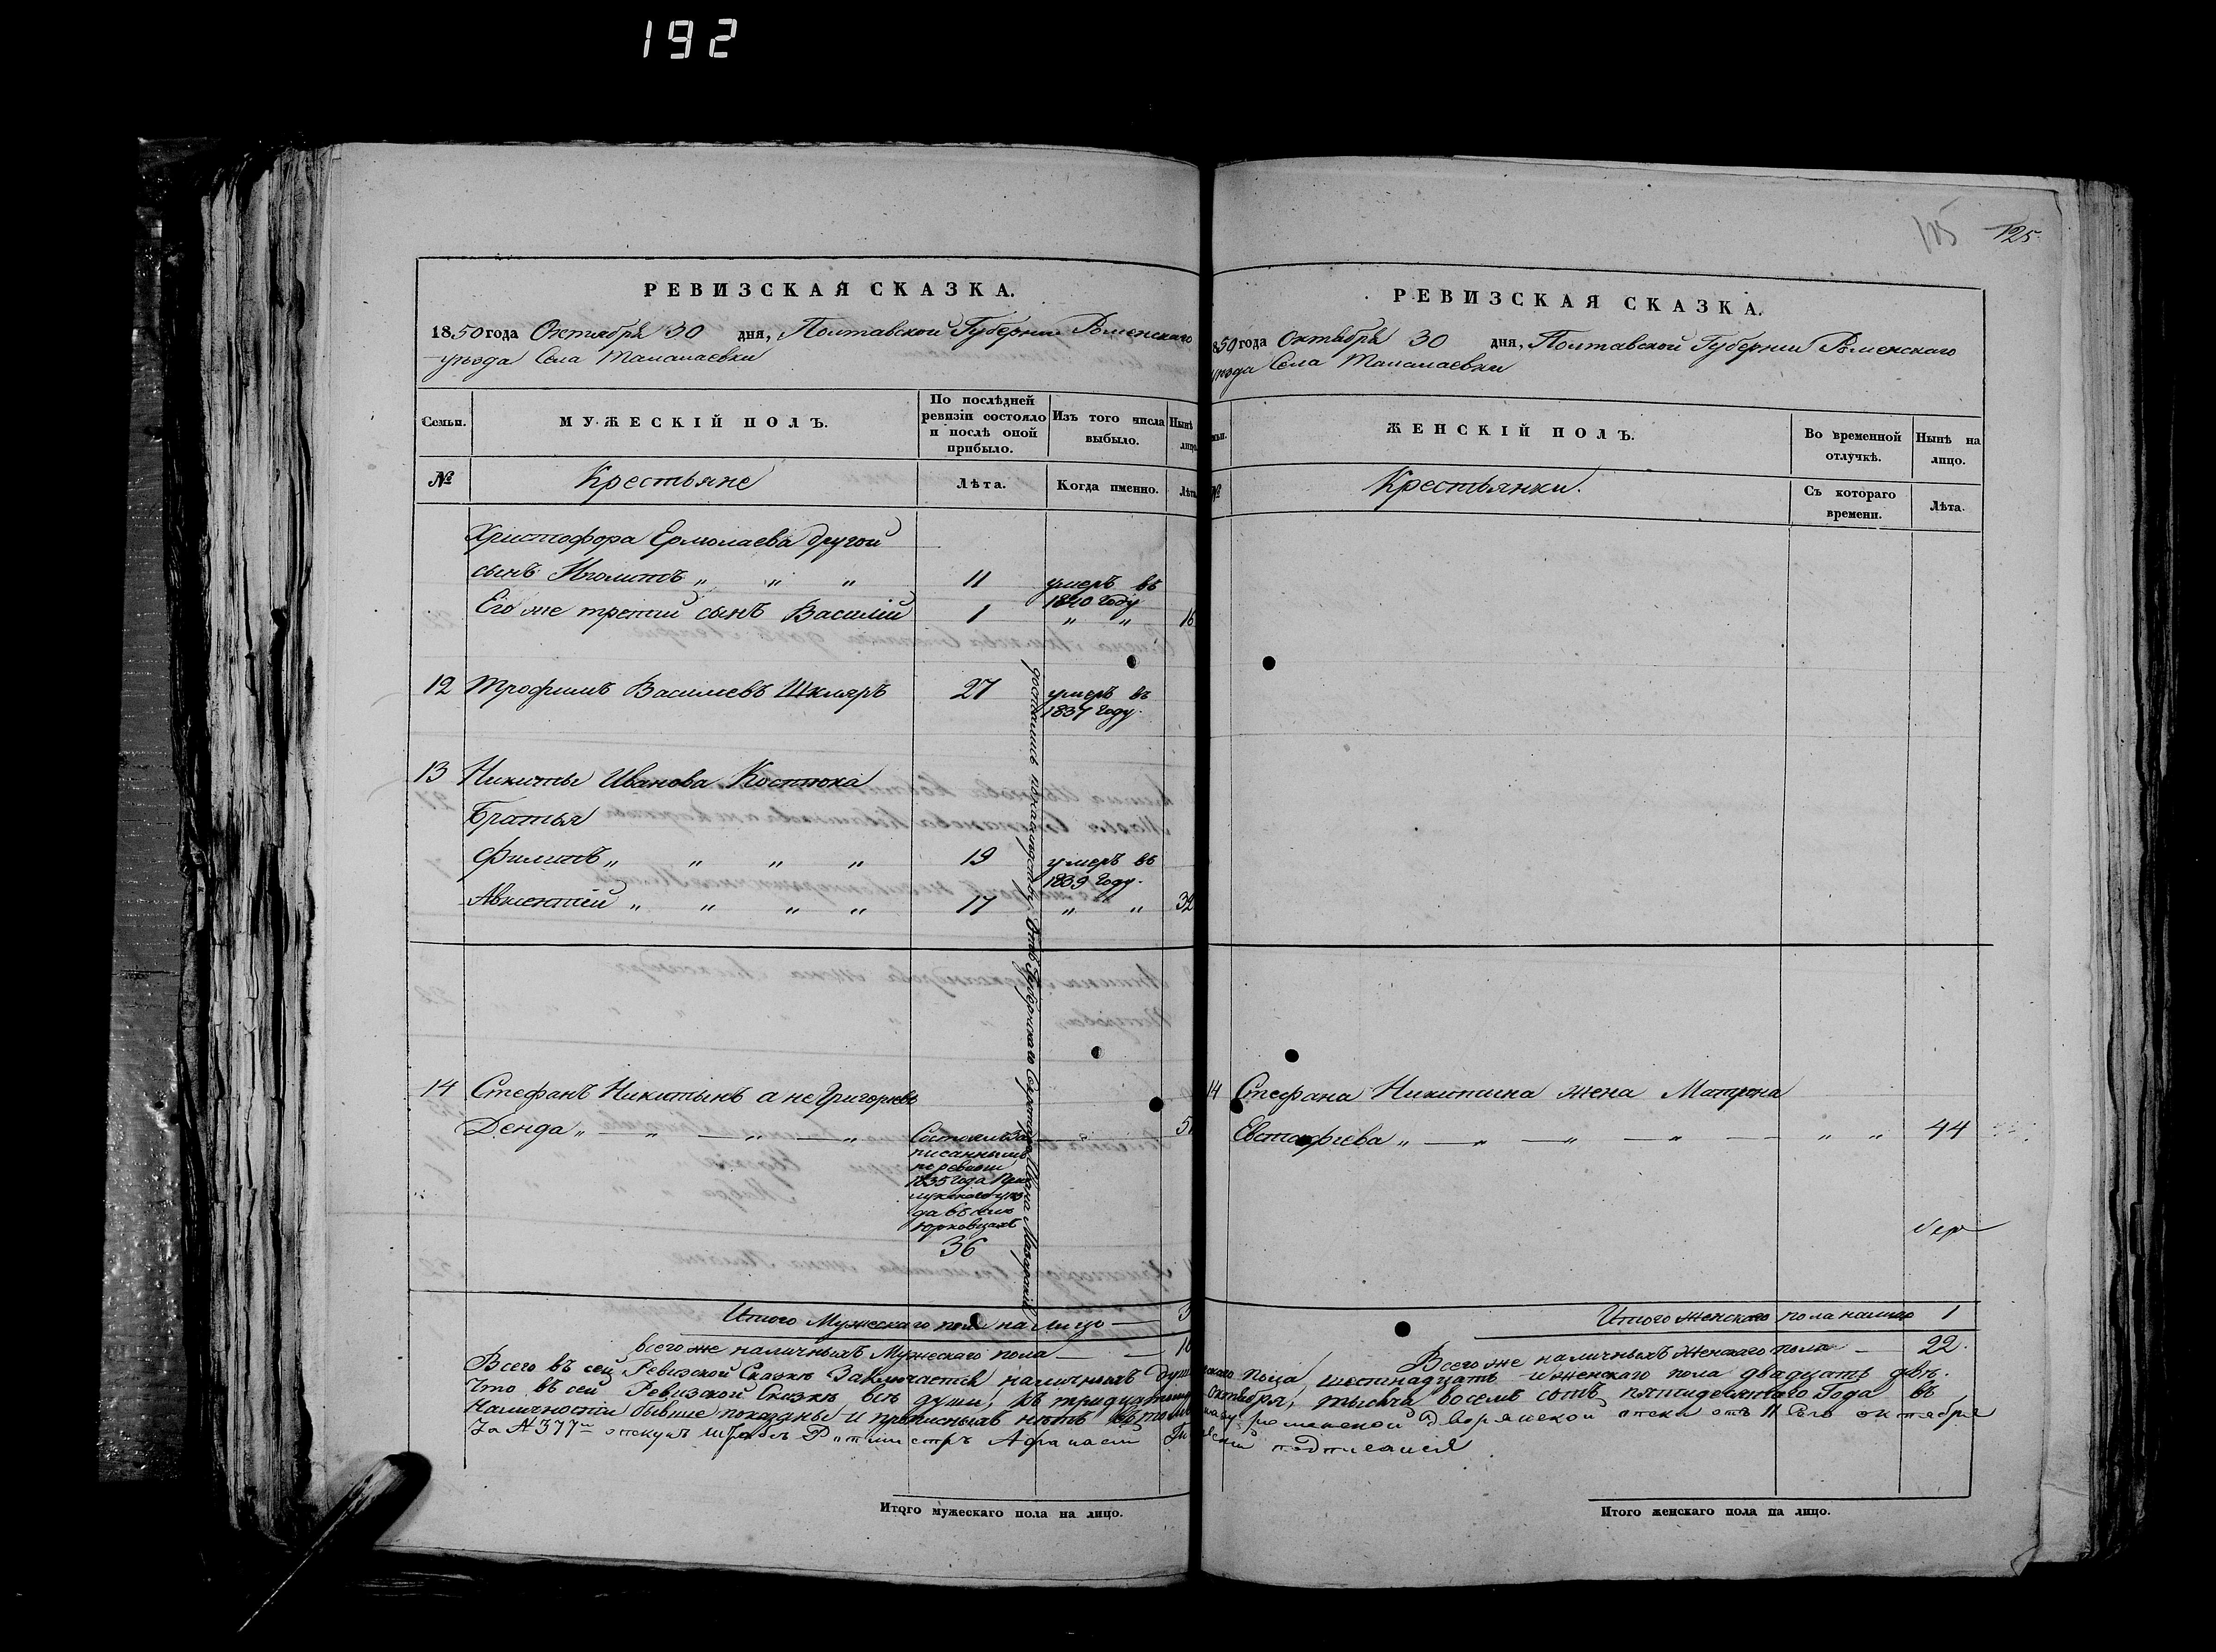 192
125
РЕВИЗСКАЯ СКАЗКА.
1850 года Октября 30 дня, Полтавской Губернии Роменскаго
уѣзда Села Талалаевки
Семьи.
МУЖЕСКІЙ ПОЛЪ.
По послѣдней ревизіи состояло и послѣ оной прибыло.
Изъ того числа выбыло.
Нынѣ лицо.
№
Крестьяне
Лѣта.
Когда именно.
Лѣта
Христофора Ермолаева другой
сынъ Иполитъ „ „ „ 11 умеръ въ 1840 году
Его же третій сынъ Василій 1 „ „ 16
12 Трофимъ Василіевъ Шкляръ 27 умеръ въ 1837 году.
13 Никиты Иванова Костюка
Братья
Филипъ „ „ „ „ 19 умеръ въ 1839 году.
Авксентій „ „ „ „ 17 „ „ 32
14 Стефанъ Никитынъ а не Григорьевъ
Денда „ „ „ „
Состоялъ за
писаннымъ
по ревизіи
1835 года При
лукскаго уѣз
да въ селѣ
Юрковцахъ
36
Итого Мужескаго пола на лицо
Всего же наличныхъ Мужескаго пола
РЕВИЗСКАЯ СКАЗКА.
1850 года Октября 30 дня, Полтавской Губерніи Роменскаго
уѣзда Села Талалаевки
ЖЕНСКІЙ ПОЛЪ.
Во временной отлучкѣ.
Нынѣ на лицо.
№
Крестьянки.
Съ котораго времени.
Лѣта.
14 Стефана Никитина жена Матрона
Евстафіева „ „ „ „ „ „ 44
Итого женскаго пола налицо 1
Всего же наличныхъ женскаго пола 22.
Всего въ сей Ревизской Сказкѣ Заключается наличныхъ душъ пола, шестнадцать и женскаго пола двадцать двѣ.
Что въ сей Ревизской Сказкѣ всѣ души, къ тридцатому Октября, тысяча восемь сотъ пятидесятаго Года въ
Наличности бывшіе показаны и прописныхъ нѣтъ роменской дворянской опеки отъ 11 сего октября
За № 377 опекунъ Штабсъ Ротмистръ Афанасій подписался
Итого мужескаго пола на лицо.
Итого женскаго пола на лицо.